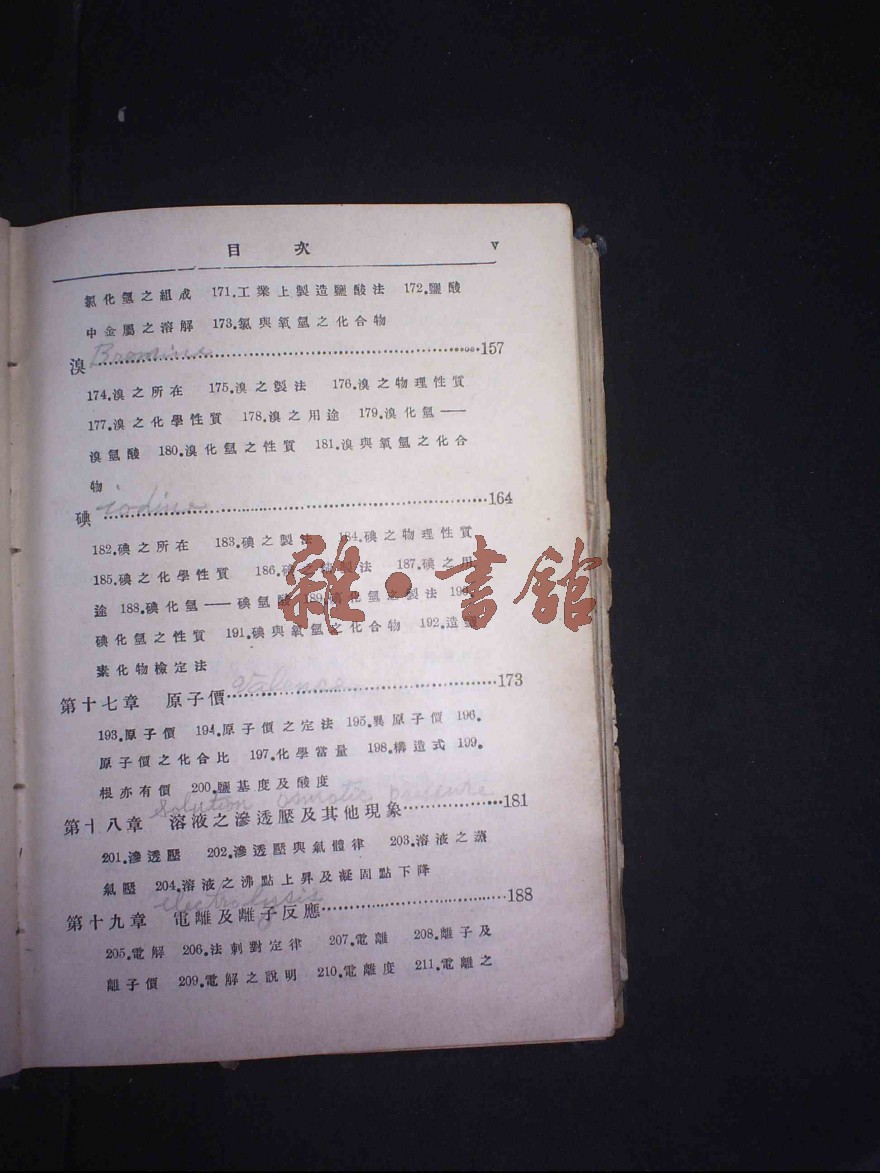 目 次 v
氯化氫之組成 171.工業上製造鹽酸法 172.鹽酸
中金屬之溶解 173.氯與氧氫之化合物
Bromine
溴……157
174.溴之所在 175.溴之製法 176.溴之物理性質
177.溴之化學性質 178.溴之用途 179.溴化氫——
溴氫酸 180.溴化氫之性質 181.溴與氧氫之化合
物
iodine
碘……164
182.碘之所在 183.碘之製法 184.碘之物理性質
185.碘之化學性質 186. 法 187.碘之用
途 188.碘化氫——碘氫酸 189. 化氫之製法 190.
碘化氫之性質 191.碘與氧氫之化合物 192.造鹽
素化物檢定法
Valence
第十七章 原子價……173
193.原子價 194.原子價之定法 195.異原子價 196.
原子價之化合比 197.化學當量 198.構造式 199.
根亦有價 200.鹽基度及酸度
Solution osmotic pressure
第十八章 溶液之滲透壓及其他現象……181
201.滲透壓 202.滲透壓與氣體律 203.溶液之蒸
氣壓 204.溶液之沸點上昇及凝固點下降
electrolysis
第十九章 電離及離子反應……188
205.電解 206.法刺對定律 207.電離 208.離子及
離子價 209.電解之說明 210.電離度 211.電離之
雜·書館